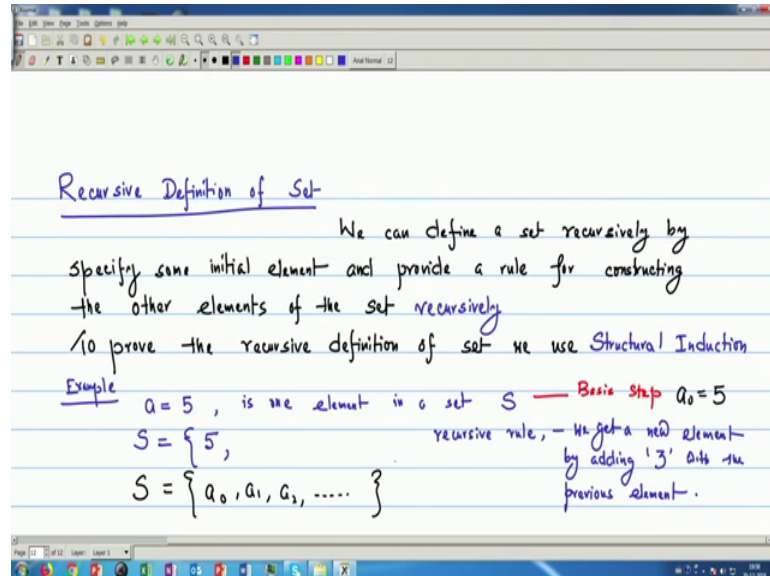 Journal
File Edit View Page Tools Options Help
Arial Normal 12
Recursive Definition of Set
We can define a set recursively by
specify some initial element and provide a rule for constructing
the other elements of the set recursively
To prove the recursive definition of set we use Structural Induction
Example a = 5 , is one element in a set S — Basis Step a₀ = 5
S = { 5 , recursive rule, – We get a new element
by adding '3' with the
previous element.
S = { a₀ , a₁ , a₂ , ..... }
Page 12 of 12 Layer: Layer 1